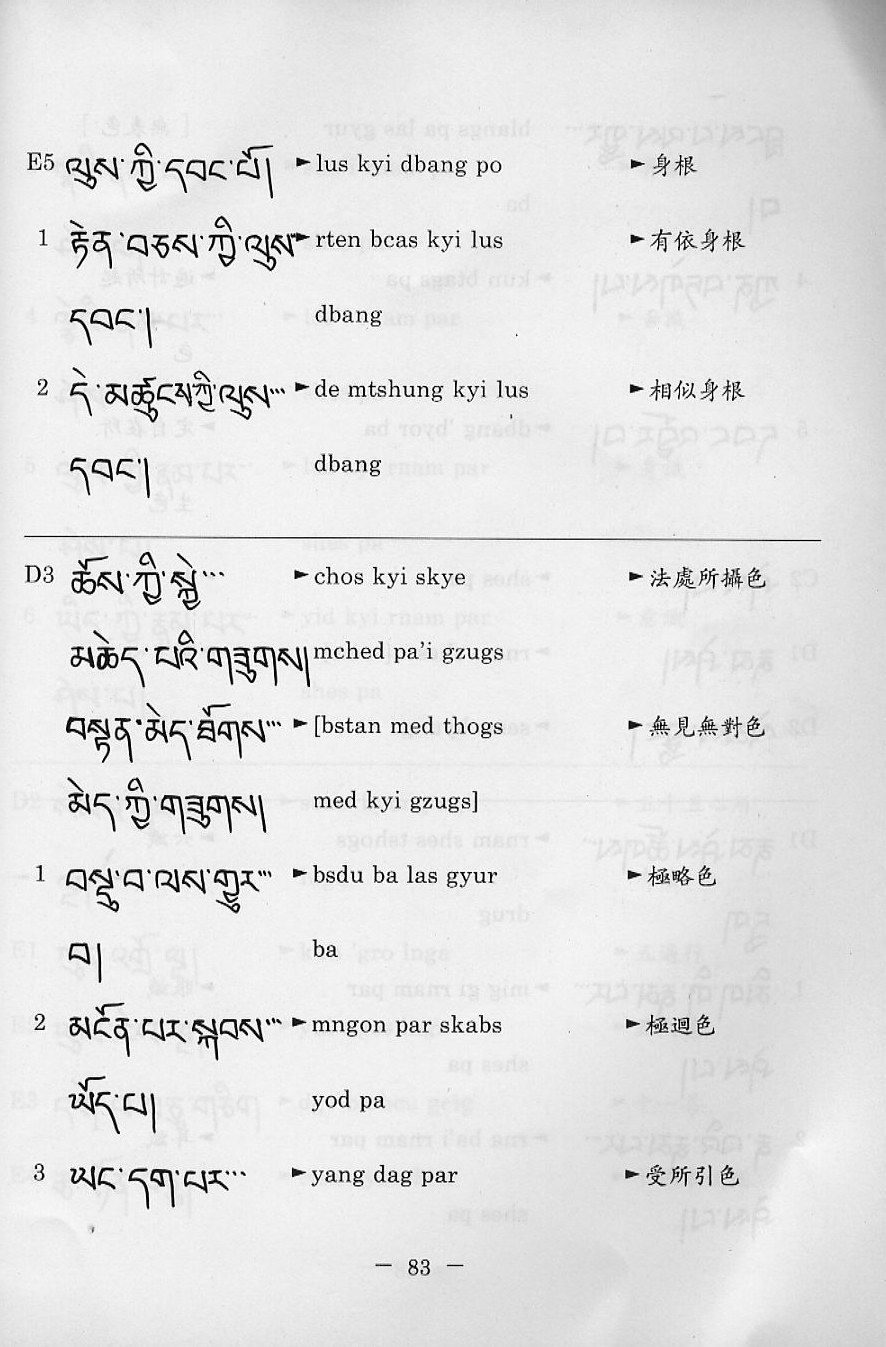 E5 ལུས་ཀྱི་དབང་པོ། ►lus kyi dbang po ►身根
1 རྟེན་བཅས་ཀྱི་ལུས ►rten bcas kyi lus ►有依身根
དབང་། dbang
2 དེ་མཚུངས་ཀྱི་ལུས… ►de mtshung kyi lus ►相似身根
དབང་། dbang
D3 ཆོས་ཀྱི་སྐྱེ… ►chos kyi skye ►法處所攝色
མཆེད་པའི་གཟུགས། mched pa'i gzugs
བསྟན་མེད་ཐོགས… ►[bstan med thogs ►無見無對色
མེད་ཀྱི་གཟུགས། med kyi gzugs]
1 བསྡུ་བ་ལས་གྱུར… ►bsdu ba las gyur ►極略色
བ། ba
2 མངོན་པར་སྐབས… ►mngon par skabs ►極迴色
ཡོད་པ། yod pa
3 ཡང་དག་པར… ►yang dag par ►受所引色
— 83 —